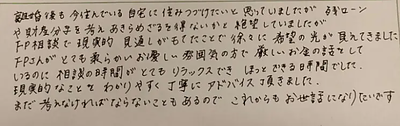 離婚後も今住んでいる自宅に住みつづけたいと思っていましたが 残ローン
や財産分与を考えあきらめざるを得ないかと絶望していましたが
FP相談で現実的 見通しがもてたことで徐々に希望の光が見えてきました
FPさんがとても柔らかいお優しい雰囲気の方で厳しいお金の話をして
いるのに相談の時間がとてもリラックスでき ほっとできる時間でした。
現実的なことをわかりやすく丁寧にアドバイス頂きました。
まだ考えなければならないこともあるので これからもお世話になりたいです